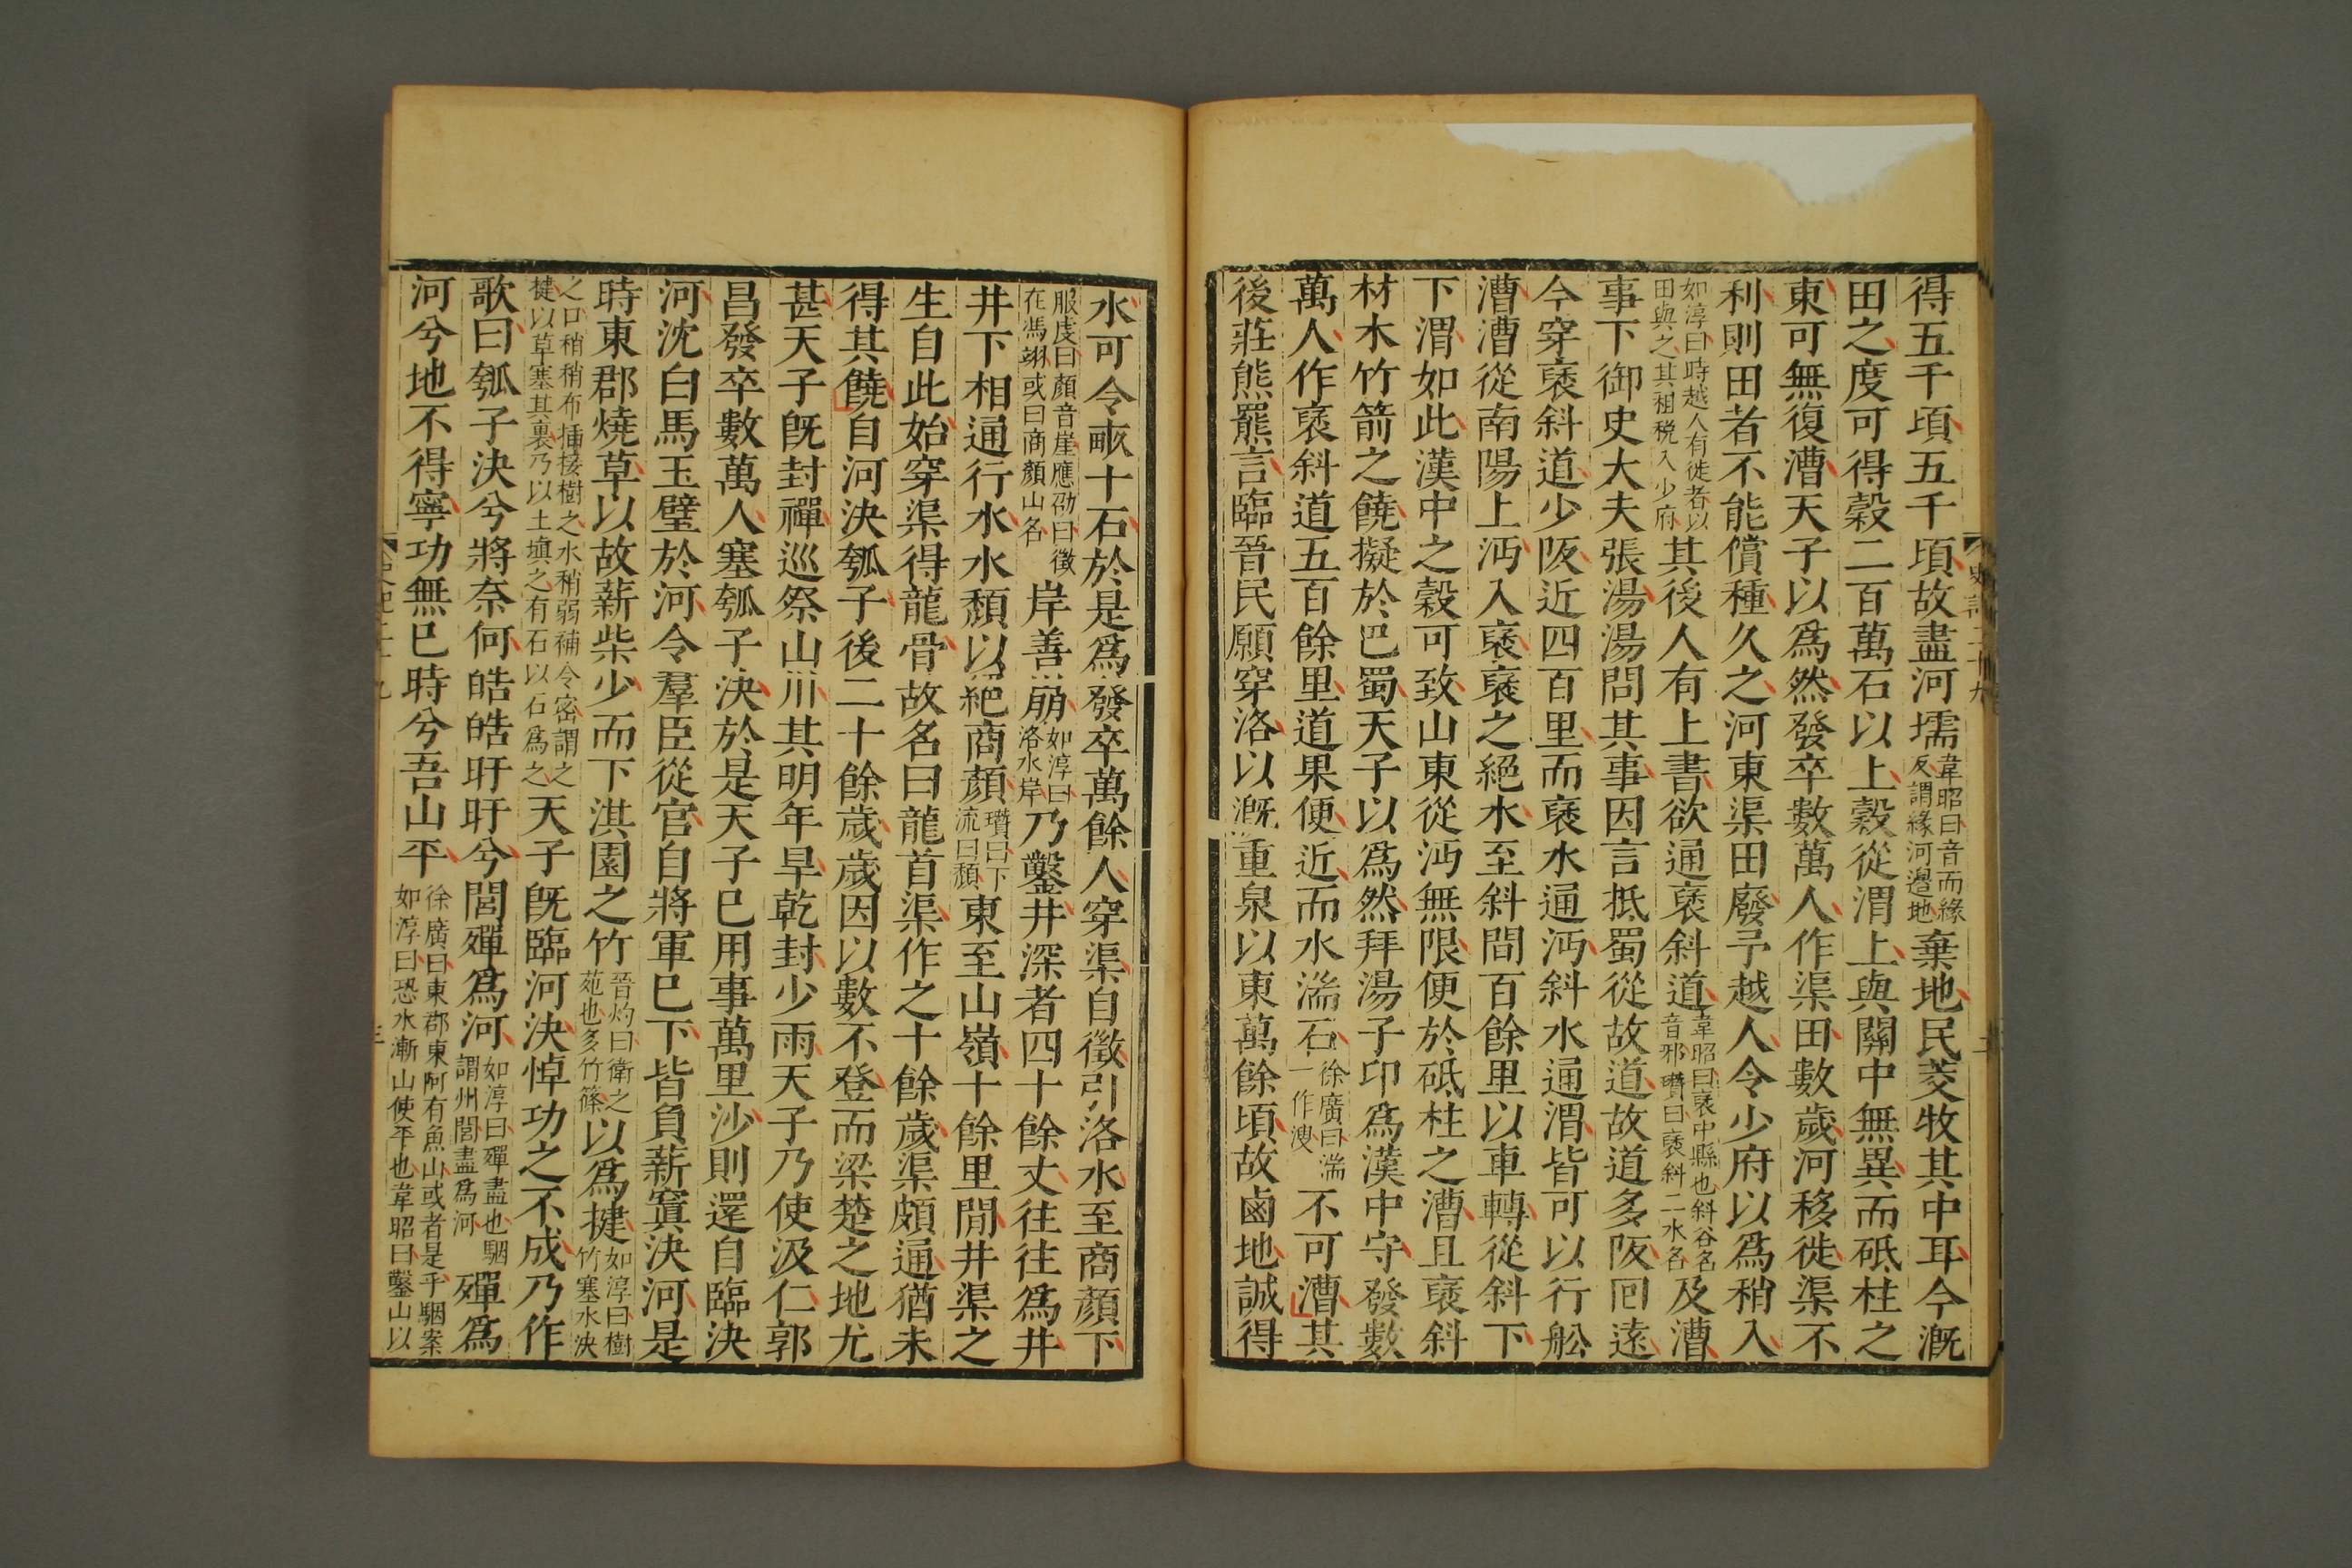 得五千頃五千頃故盡河壖韋昭曰音而緣反謂緣河邊地棄地民茭牧其中耳今溉
田之度可得穀二百萬石以上穀從渭上與關中無異而砥柱之
東可無復漕天子以爲然發卒數萬人作渠田數歲河移徙渠不
利則田者不能償種久之河東渠田廢予越人令少府以爲稍入
如淳曰時越人有徙者以田與之其租稅入少府其後人有上書欲通褒斜道韋昭曰褒中縣也斜谷名音邪瓚曰褒斜二水名及漕
事下御史大夫張湯湯問其事因言抵蜀從故道故道多阪回遠
今穿褒斜道少阪近四百里而褒水通沔斜水通渭皆可以行舩
漕漕從南陽上沔入褒褒之絕水至斜間百餘里以車轉從斜下
下渭如此漢中之穀可致山東從沔無限便於砥柱之漕且褒斜
材木竹箭之饒擬於巴蜀天子以爲然拜湯子卬爲漢中守發數
萬人作褒斜道五百餘里道果便近而水湍石徐廣曰湍一作溲不可漕其
後莊熊羆言臨晉民願穿洛以溉重泉以東萬餘頃故鹵地誠得
水可令畝十石於是爲發卒萬餘人穿渠自徵引洛水至商顏下
服虔曰顏音崖應劭曰徵在馮翊或曰商顏山名岸善崩如淳曰洛水岸乃鑿井深者四十餘丈往往爲井
井下相通行水水頹以絕商顏瓚曰下流曰頹東至山嶺十餘里間井渠之
生自此始穿渠得龍骨故名曰龍首渠作之十餘歲渠頗通猶未
得其饒自河決瓠子後二十餘歲歲因以數不登而梁楚之地尤
甚天子旣封禪巡祭山川其明年旱乾封少雨天子乃使汲仁郭
昌發卒數萬人塞瓠子決於是天子已用事萬里沙則還自臨決
河沈白馬玉璧於河令羣臣從官自將軍已下皆負薪窴決河是
時東郡燒草以故薪柴少而下淇園之竹晉灼曰衛之苑也多竹篠以爲揵如淳曰樹竹塞水決
之口稍稍布插接樹之水稍弱補令密謂之楗以草塞其裏乃以土塡之有石以石爲之天子旣臨河決悼功之不成乃作
歌曰瓠子決兮將奈何皓皓旴旴兮閭殫爲河如淳曰殫盡也駰謂州閭盡爲河殫爲
河兮地不得寧功無已時兮吾山平徐廣曰東郡東阿有魚山或者是乎駰案如淳曰恐水漸山使平也韋昭曰鑿山以